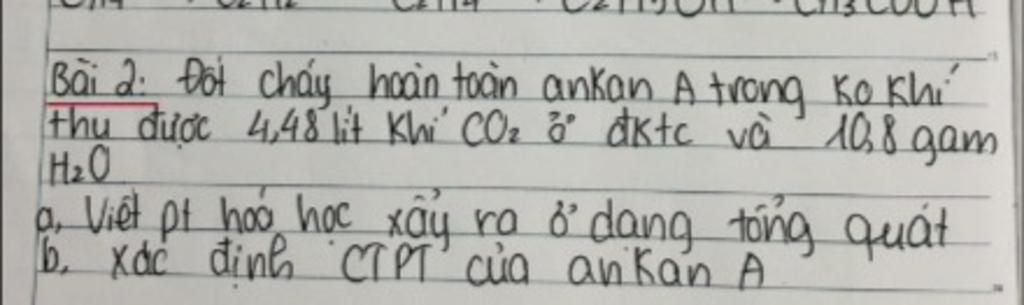 CH4 C2H2 C2H4 C2H5OH CH3COOH
Bài 2: Đốt cháy hoàn toàn ankan A trong ko khí
thu được 4,48 lít khí CO2 ở đktc và 10,8 gam
H2O
a, Viết pt hoá học xảy ra ở dạng tổng quát
b, xác định CTPT của ankan A